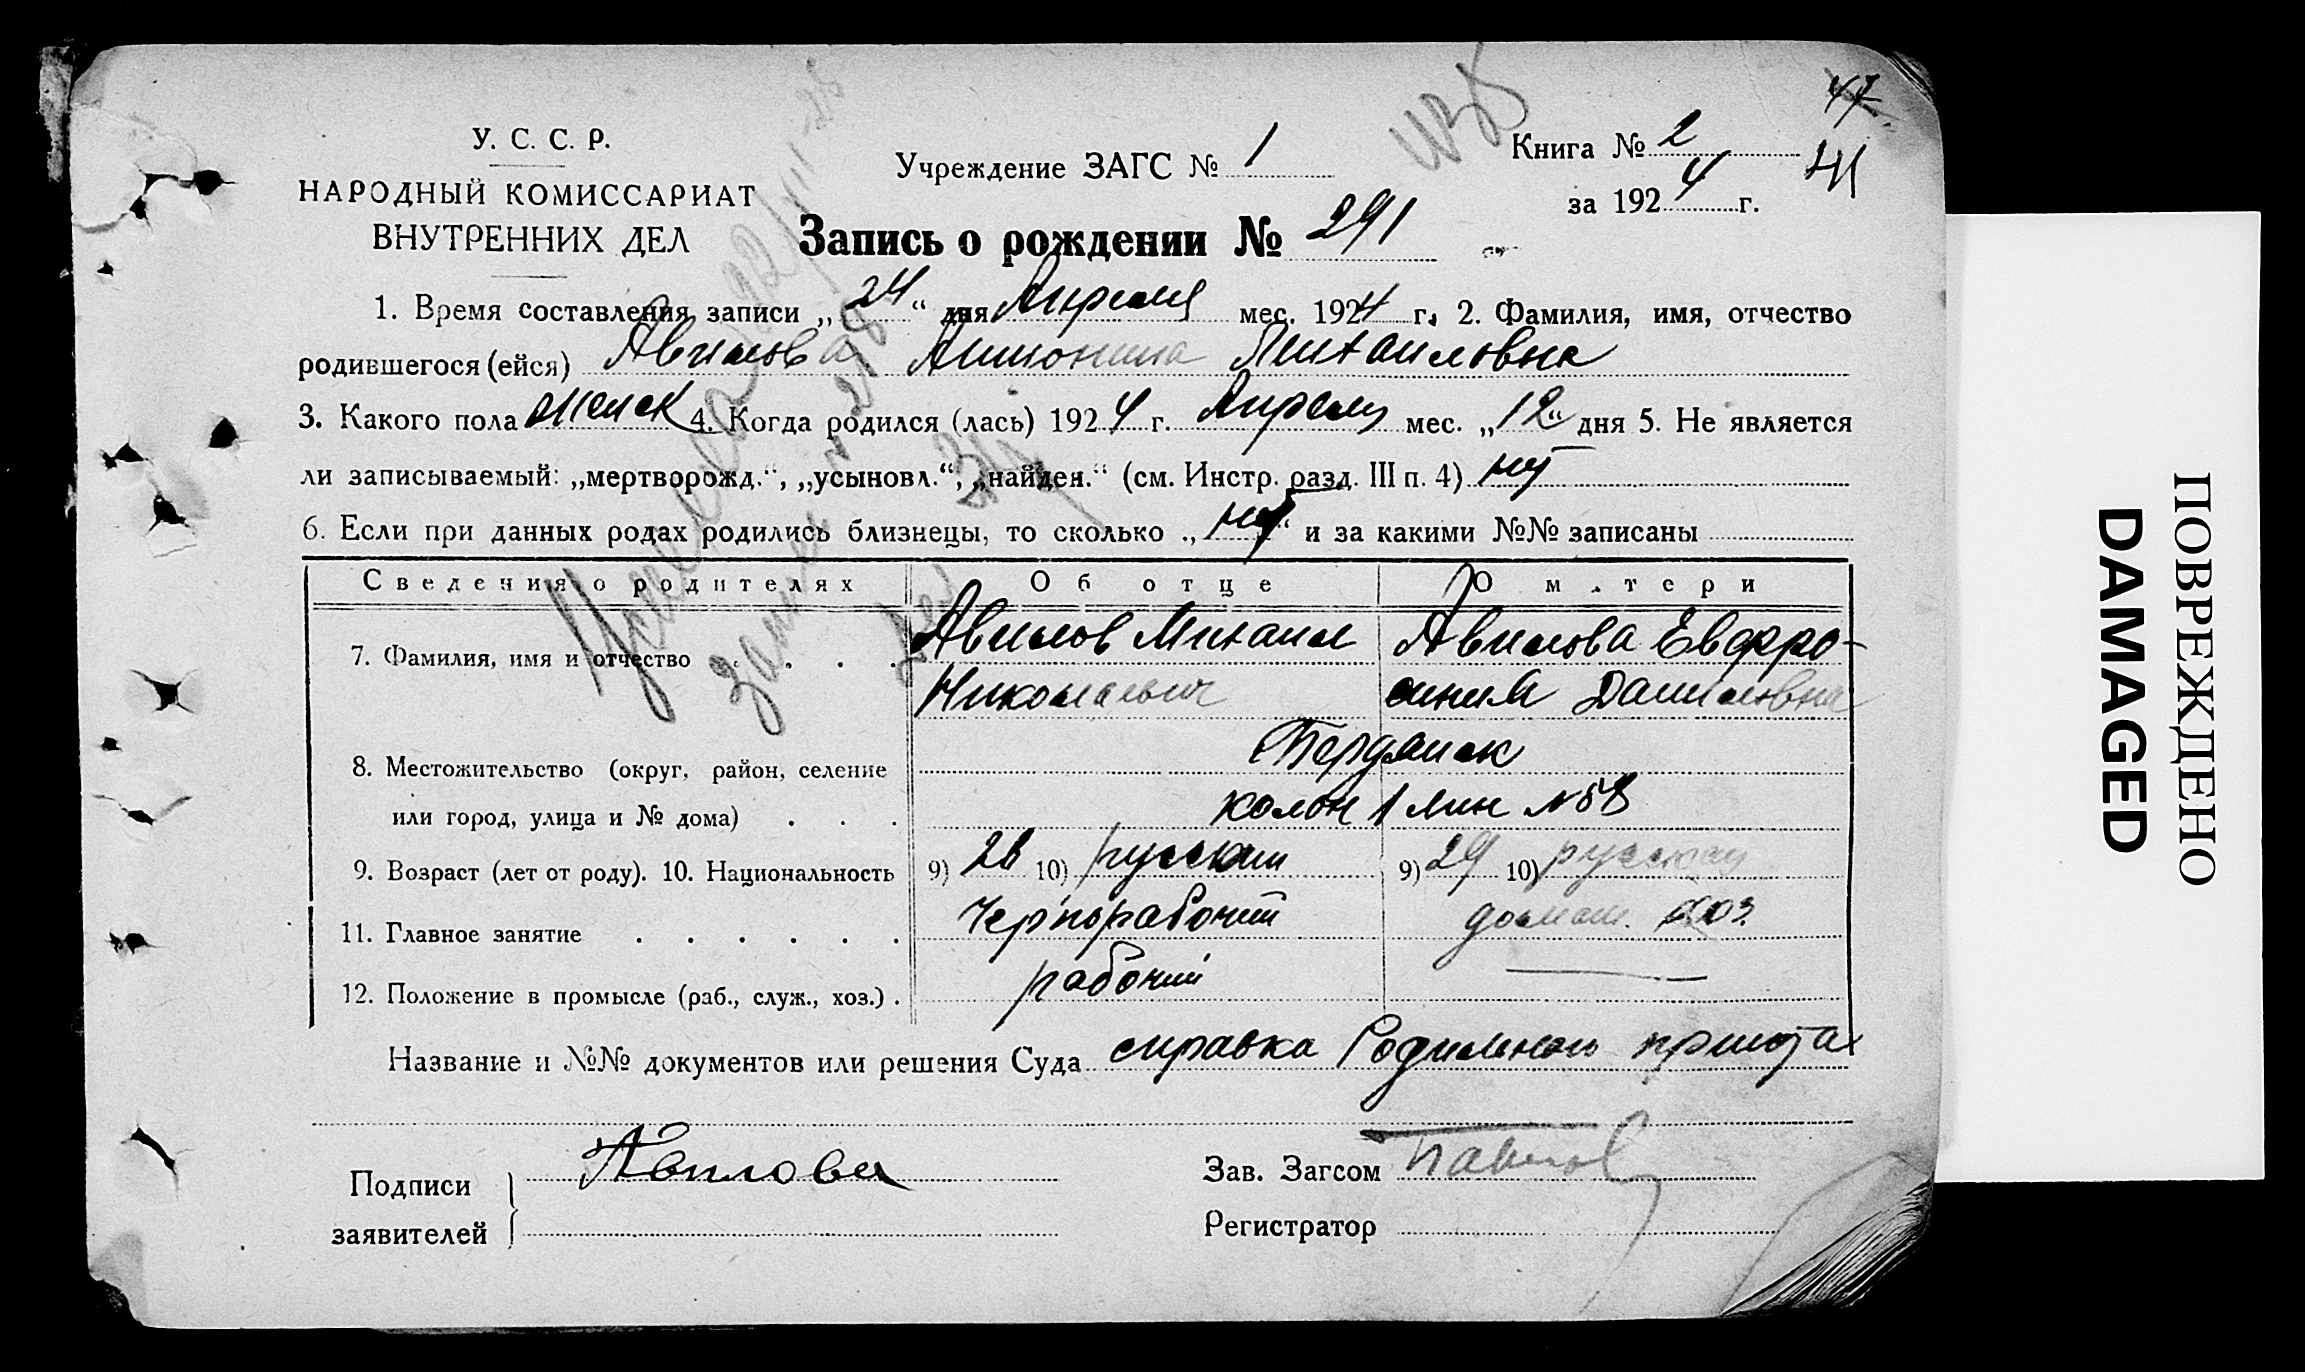 47
41
У. С. С. Р.
НАРОДНЫЙ КОМИССАРИАТ
ВНУТРЕННИХ ДЕЛ
Учреждение ЗАГС № 1
Книга № 2
за 1924 г.
Запись о рождении № 291
1. Время составления записи „24“ дня Апреля мес. 1924 г. 2. Фамилия, имя, отчество
родившегося (ейся) Авилова Антонина Михаиловна
3. Какого пола женск 4. Когда родился (лась) 1924 г. Апреля мес. „12“ дня 5. Не является
ли записываемый: „мертворожд.“, „усыновл.“, „найден.“ (см. Инстр. разд. III п. 4) нет
6. Если при данных родах родились близнецы, то сколько „нет“ и за какими №№ записаны
Сведения о родителях Об отце О м.тери
7. Фамилия, имя и отчество . . . . Авилов Михаил Авилова Евфро-
Николаевич синия Даниловна
8. Местожительство (округ, район, селение Бердянск
или город, улица и № дома) . . . колон 1 лин №53
9. Возраст (лет от роду). 10. Национальность 9) 28 10) русский 9) 29 10) русская
11. Главное занятие . . . . . . Чернорабочий домаш. хоз.
12. Положение в промысле (раб., служ., хоз.) . рабочий —
Название и №№ документов или решения Суда справка Родильного приюта
Подписи
заявителей
Авилова
Зав. Загсом
Регистратор
ПОВРЕЖДЕНО
DAMAGED